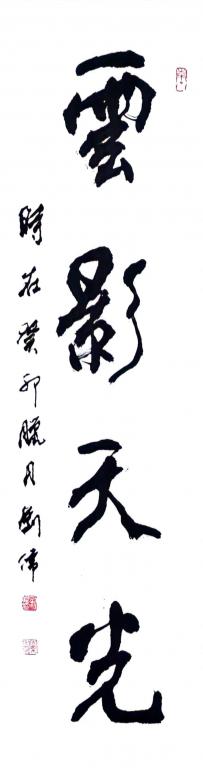 雲影天光
時在癸卯臘月劉偉